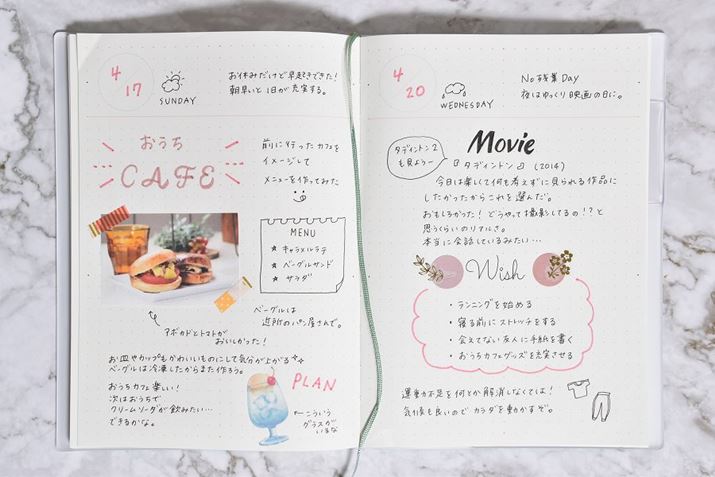 4
17
SUNDAY
お休みだけど早起きできた!
朝早いと1日が充実する。
おうち
CAFE
前に行ったカフェを
イメージして
メニューを作ってみた
MENU
★ キャラメルラテ
★ ベーグルサンド
★ サラダ
アボカドとトマトが
おいしかった!
ベーグルは
近所のパン屋さんで。
お皿やカップもかわいいものにして気分が上がる
ベーグルは冷凍したからまた作ろう。
おうちカフェ楽しい!
次はおうちで
クリームソーダが飲みたい…
できるかな。
PLAN
←こういう
グラスが
いるな
4
20
WEDNESDAY
No残業Day
夜はゆっくり映画の日に。
Movie
タディントン2
も見よう〜
『タディントン』(2014)
今日は楽しくて何も考えずに見られる作品に
したかったからこれを選んだ。
おもしろかった!どうやって撮影してるの!?と
思うくらいのリアルさ。
本当に会話しているみたい…
Wish
・ランニングを始める
・寝る前にストレッチをする
・会えてない友人に手紙を書く
・おうちカフェグッズを充実させる
運動不足を何とか解消しなくては!
気候も良いのでカラダを動かすぞ。